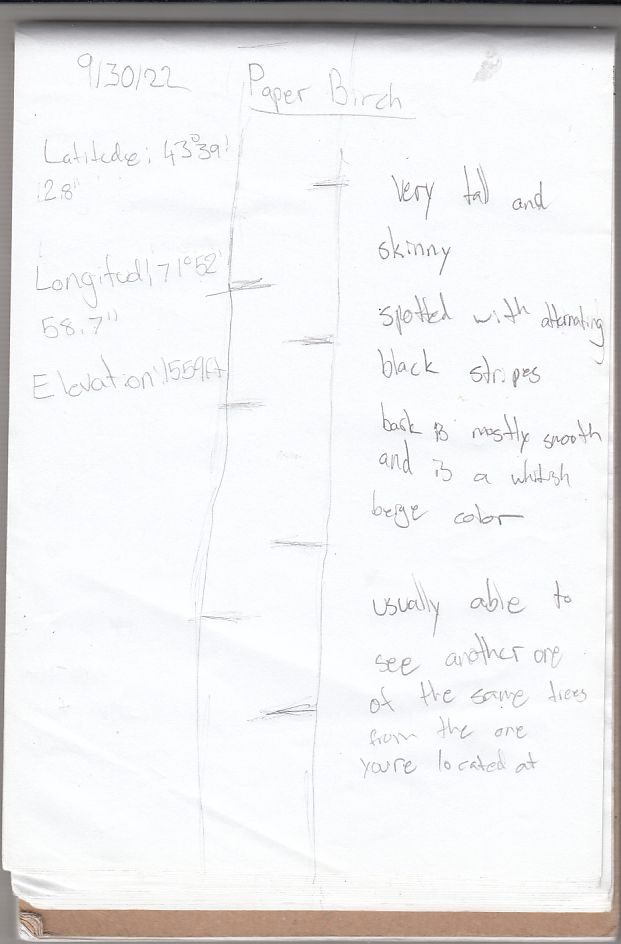 9/30/22
Paper Birch
Latitude: 43°39'
12.8"
Longitud 71°52'
58.7"
Elevation 1559ft
very tall and
skinny
spotted with alternating
black stripes
bark is mostly smooth
and is a whitish
beige color
usually able to
see another one
of the same trees
from the one
youre located at